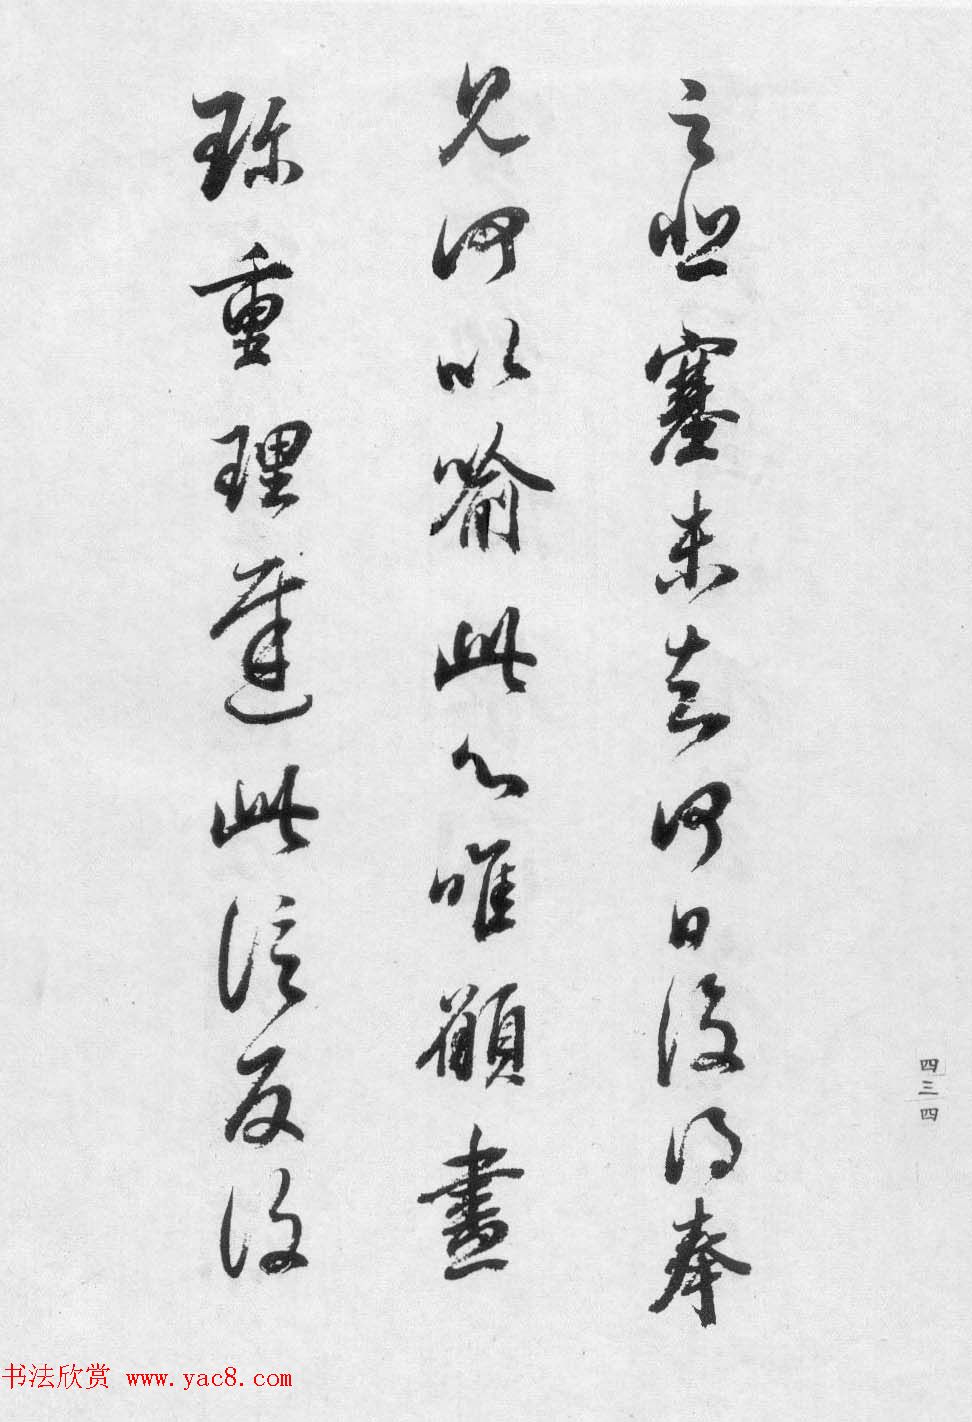 之悲塞未去何日復得奉
見何以喻此心唯願盡
珍重理遲此信反復
四三四
书法欣赏 www.yac8.com